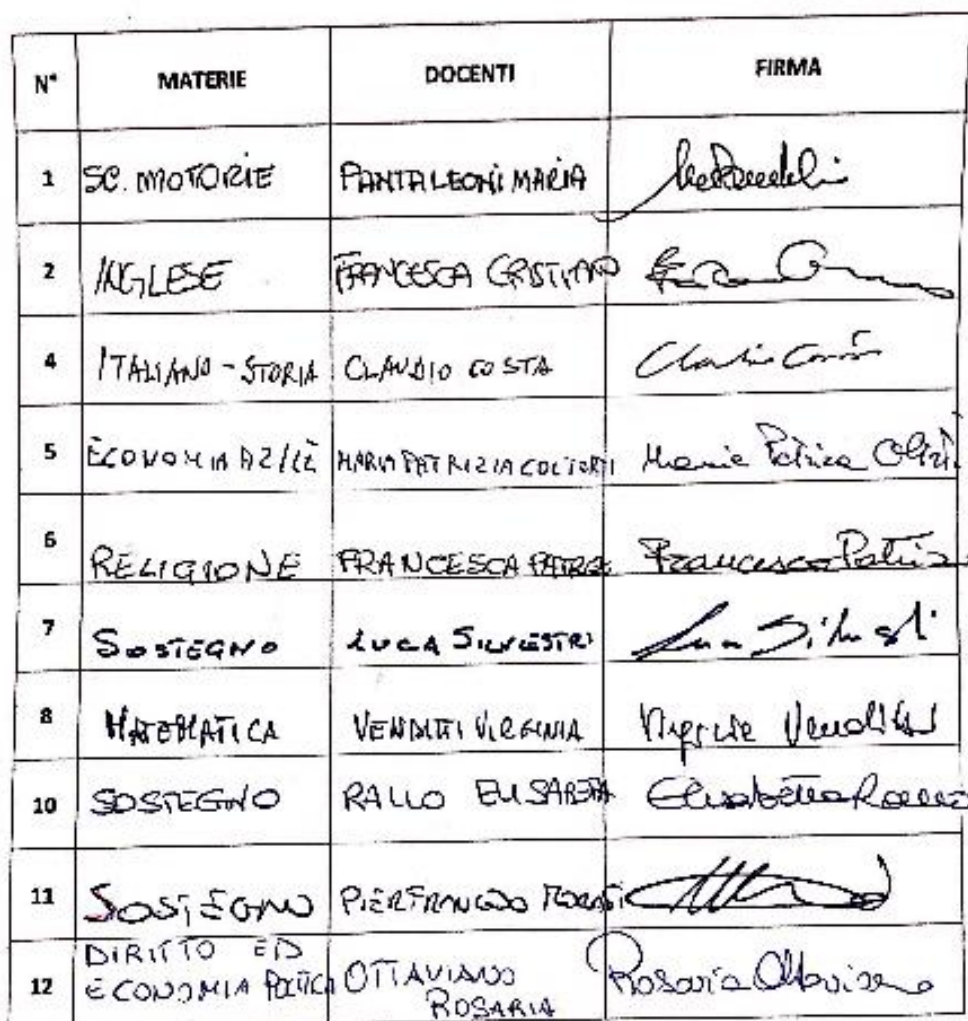 N° MATERIE DOCENTI FIRMA
1 SC. MOTORIE PANTALEONI MARIA
2 INGLESE FRANCESCA CRISTIANO
4 ITALIANO - STORIA CLAUDIO COSTA Claudio Costa
5 ECONOMIA AZ/LE MARIA PATRIZIA COLTORTI Maria Patrizia
6 RELIGIONE FRANCESCA Francesca
7 SOSTEGNO LUCA SILVESTRI Luca Silvestri
8 MATEMATICA VENDITTI VIRGINIA Virginia Venditti
10 SOSTEGNO RALLO ELISABETTA Elisabetta Rallo
11 SOSTEGNO
12 DIRITTO ED
ECONOMIA POLITICA OTTAVIANO
ROSARIA Rosaria Ottaviano